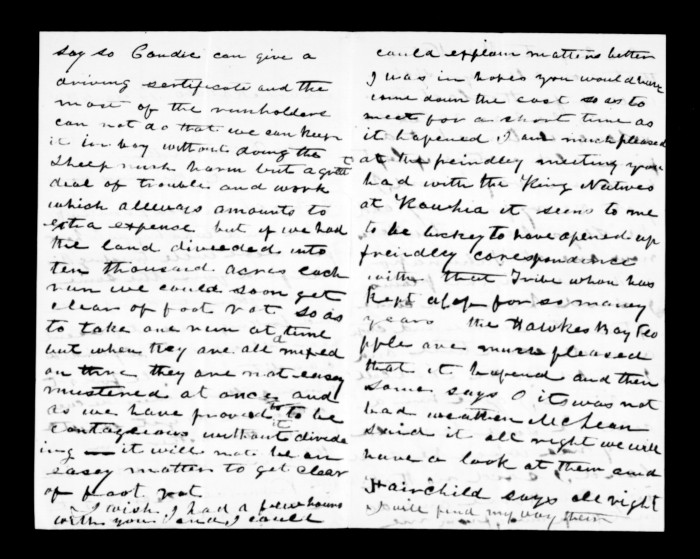 say so Condie can give a
driving sertificate and the
most of the runholders
can not do that we can keep
it in bay without doing the
Sheep much harm but a gratt
deal of trouble and work
which allways amounts to
a expense but if we had
the land diveeded into
ten thousand acres each
run we could soon get
clear of foot rot so as
to take one run at a time
but when they are all mixed
on thene they are not easey
mustered at once and
as we have proved it to be
contageious without divide
ing it will not be an
easey matter to get clear
of foot rot
I wish I had a few hours
with you and I could
could explain matters better
I was in hopes you would have
come down the cost so as to
meet for a short time as
it hapened I am much pleased
at the freindley meeting you
had with the King Natives
at Kawhia it seems to me
to be luckey to have opened up
freindley corespondence
with that Tribe whom has
kept aloof for so maney
years the Hawkes Bay Peo
pple are much pleased
that it hapend and then
some says O it was not
bad weather McLean
said it all right we will
have a look at them and
Fairchild says all right
I will find my way them